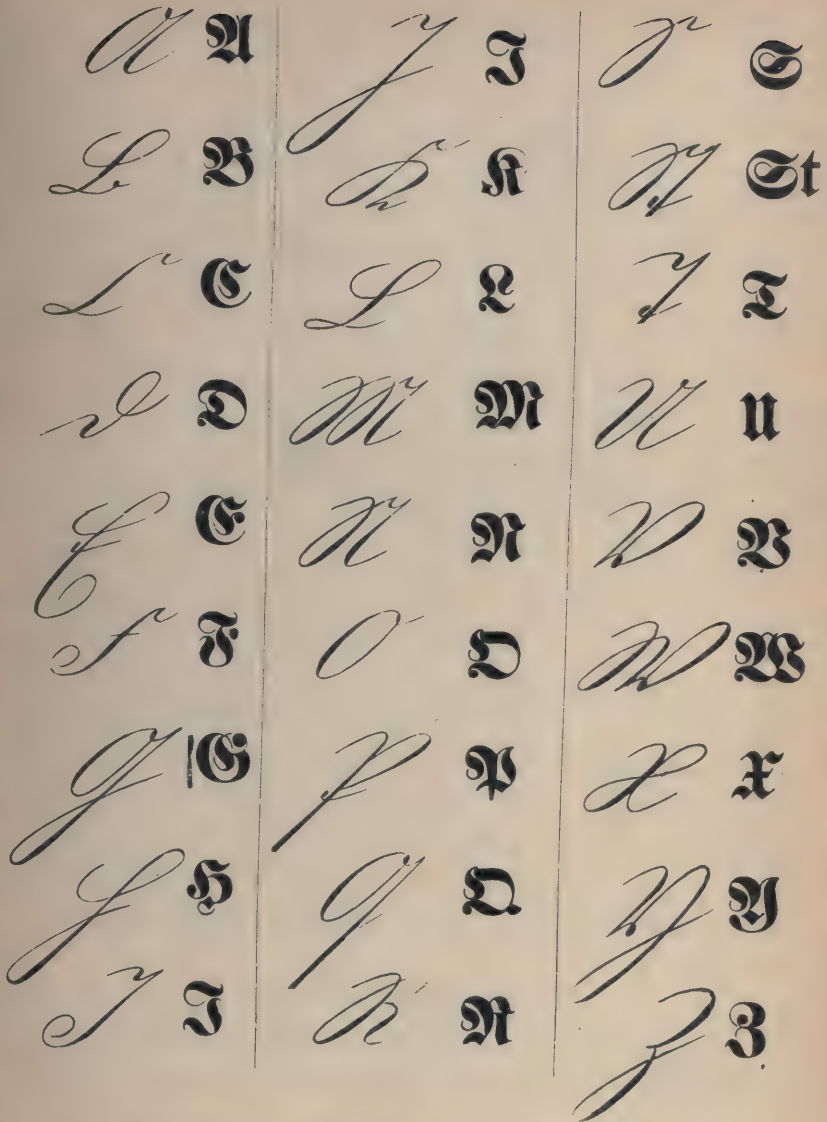 A A
B B
C C
D D
E E
F F
G G
H H
I I
J J
K K
L L
M M
N N
O O
P P
Q Q
R R
S S
St St
T T
U U
V V
W W
X X
Y Y
Z Z